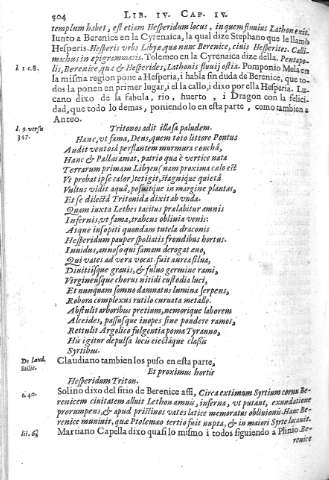 504 LIB. IV. CAP. IV.
templum habet, est etiam Hesperidum lacus, in quem fluuius Lathon exit.
Iunto a Berenice en la Cyrenaica, la qual dize Stephano que se llamò
Hesperis. Hesperis vrbs Libyæ, quæ nunc Berenice, ciuis Hesperites. Calli-
machus in epigrammatis. Tolemeo en la Cyrenaica dize della. Pentapo-
l. 1 c. 8. lis, Berenice, quæ & Hesperides, Lathonis fluuij ostia. Pomponio Mela en
la misma region pone a Hesperia, i habla sin duda de Berenice, que to-
dos la ponen en primer lugar, i el la callo, dixo por ella Hesperia. Lu-
cano dixo de la fabula, rio, huerto, i Dragon con la felici-
dad, que todo lo demas, poniendolo en esta parte, como tambien a
Anteo.
l. 9. versu Tritonos adit illæsa paludem.
347. Hanc, vt fama, Deus, quem toto litore Pontus
Audit ventosa perflantem murmura concha,
Hanc & Pallas amat, patrio quæ vertice nata
Terrarum primam Libyen nam proxima cælo est
Vt probat ipse calor, tetigit, stagnique quieta
Vultus vidit aqua, posuitque in margine plantas,
Et se dilecta Tritonida dixit ab vnda.
Quam iuxta Lethes tacitus prælabitur amnis
Infernis, vt fama, trahens obliuia venis:
Atque insopiti quondam tutela draconis
Hesperidum pauper spoliatis frondibus hortus.
Inuidus, annoso qui famam derogat æuo,
Qui vates ad vera vocat. fuit aurea silua,
Diuitijsque grauis, & fuluo germine rami,
Virgineusque chorus nitidi custodia luci,
Et nunquam somno damnatus lumina serpens,
Robora complexus rutilo curuata metallo.
Abstulit arboribus pretium, memorique laborem
Alcides, passusque inopes sine pondere ramos,
Rettulit Argolico fulgentia poma Tyranno,
His igitur depulsa locis eiectaque classis
Syrtibus.
De Laud. Claudiano tambien los puso en esta parte,
Et proximus hortis
Hesperidum Triton.
c. 40. Solino dixo del sitio de Berenice assi, Circa extimum Syrtium cornu Be-
renicem ciuitatem alluit Lethon amnis, inferna, vt putant, exundatione
prorumpens, & apud pristinos vates latice memoratus obliuionis. Hanc Be-
renice muniuit, quæ Ptolemæo tertio fuit nupta, & in maiori Syrte locauit.
lib. 6. Martiano Capella dixo quasi lo mismo i todos siguiendo a Plinio. Be-
renice